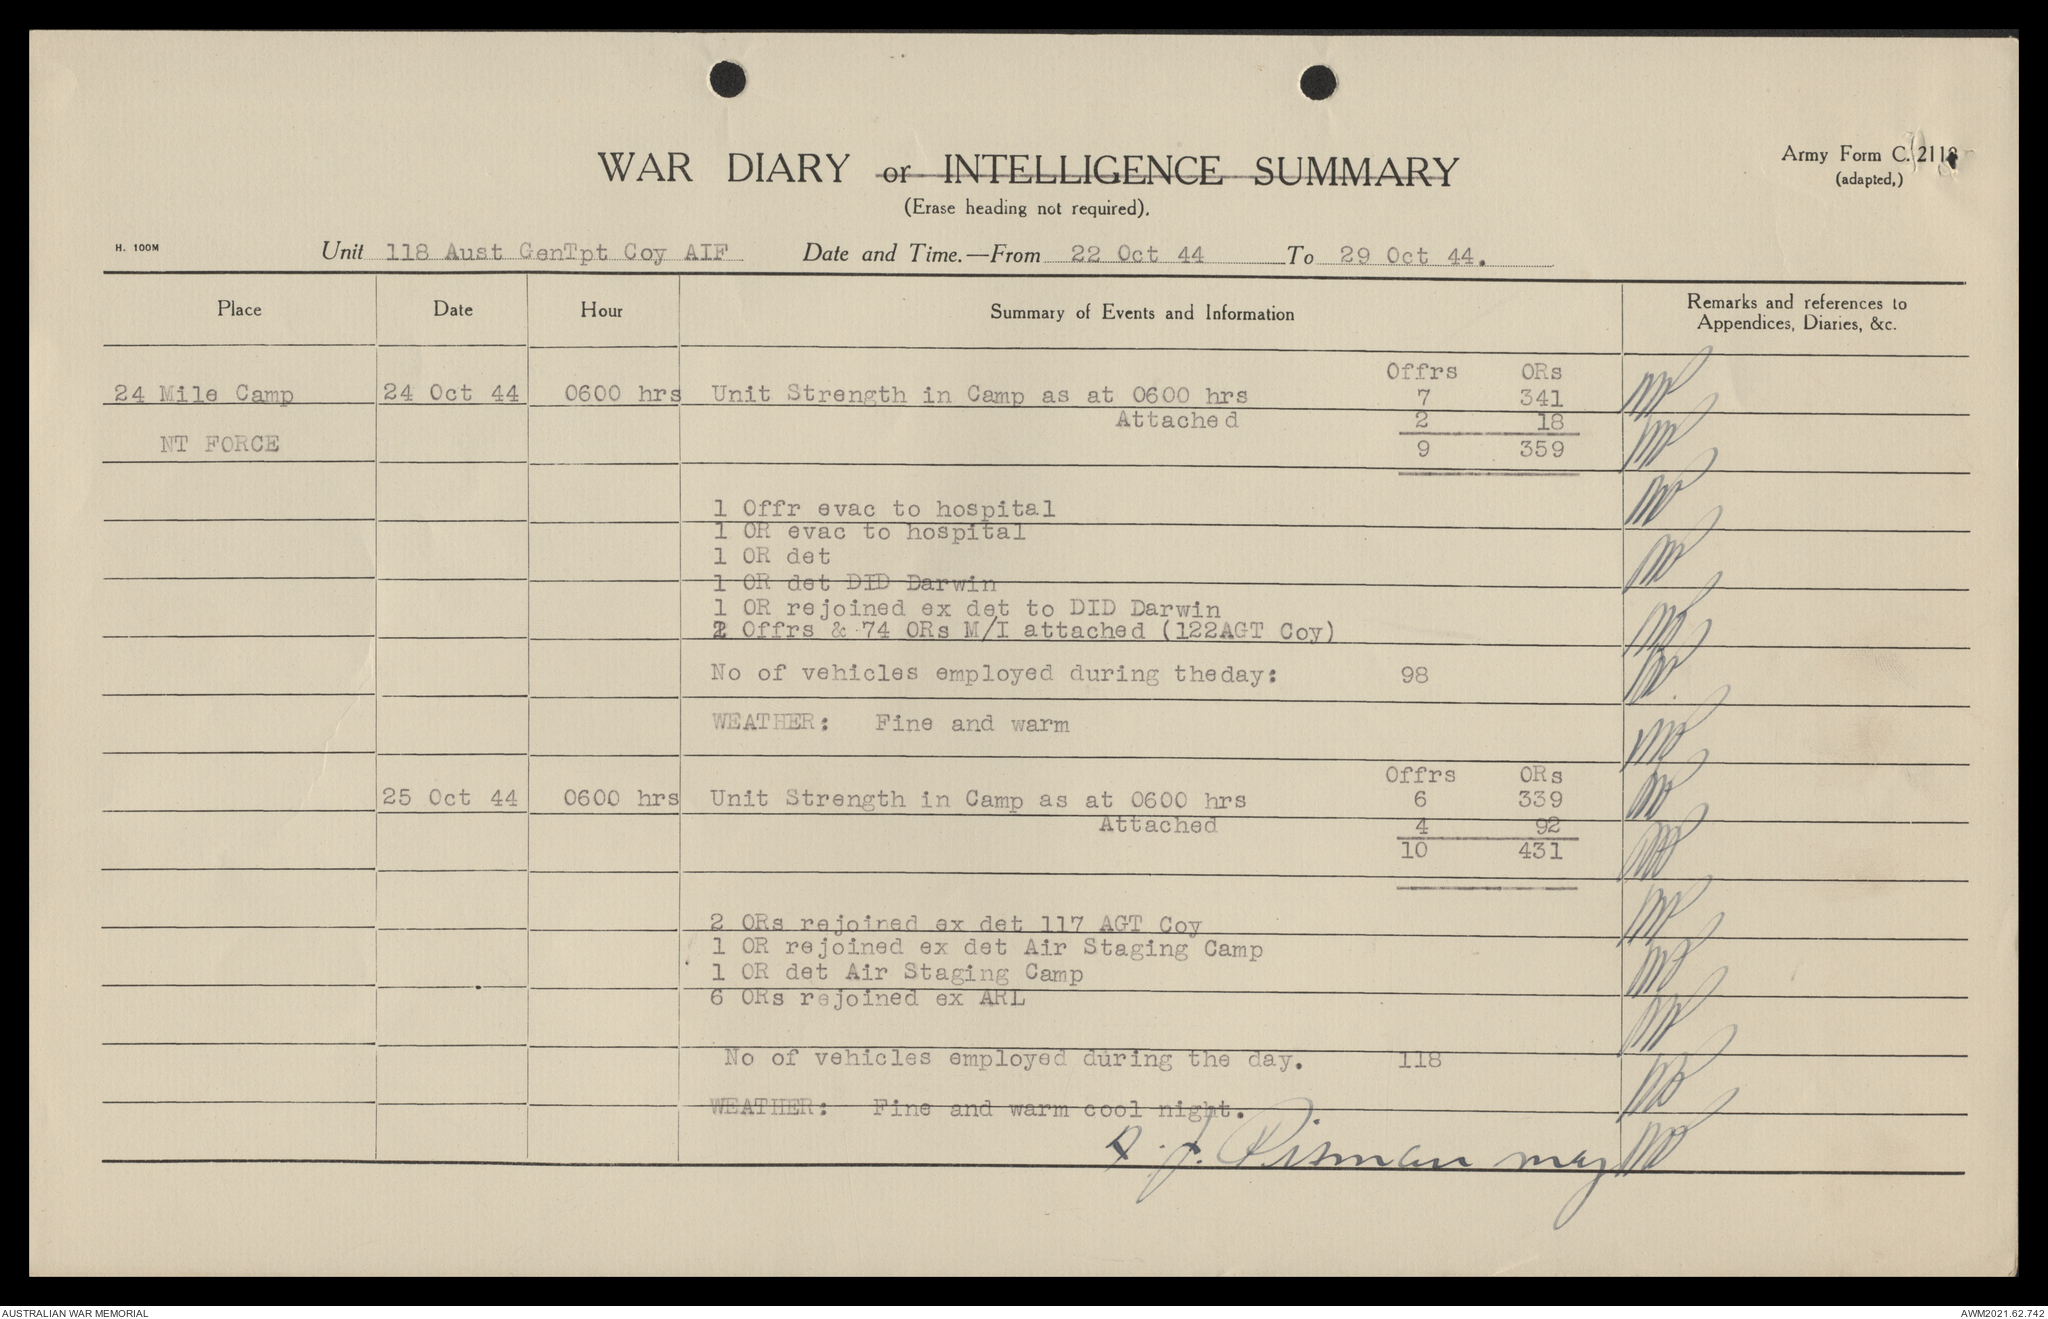 WAR DIARY or INTELLIGENCE SUMMARY
Army Form C. 2118
(adapted,)
(Erase heading not required).
H. 100M
Unit 118 Aust GenTpt Coy AIF Date and Time.—From 22 Oct 44 To 29 Oct 44.
Place Date Hour Summary of Events and Information Remarks and references to Appendices, Diaries, &c.
Offrs ORs
24 Mile Camp 24 Oct 44 0600 hrs Unit Strength in Camp as at 0600 hrs 7 341
Attached 2 18
NT FORCE 9 359
1 Offr evac to hospital
1 OR evac to hospital
1 OR det
1 OR det DID Darwin
1 OR rejoined ex det to DID Darwin
2 Offrs & 74 ORs M/I attached (122AGT Coy)
No of vehicles employed during theday: 98
WEATHER: Fine and warm
Offrs ORs
25 Oct 44 0600 hrs Unit Strength in Camp as at 0600 hrs 6 339
Attached 4 92
10 431
2 ORs rejoined ex det 117 AGT Coy
1 OR rejoined ex det Air Staging Camp
1 OR det Air Staging Camp
6 ORs rejoined ex ARL
No of vehicles employed during the day. 118
WEATHER: Fine and warm cool night.
AUSTRALIAN WAR MEMORIAL
AWM2021.62.742